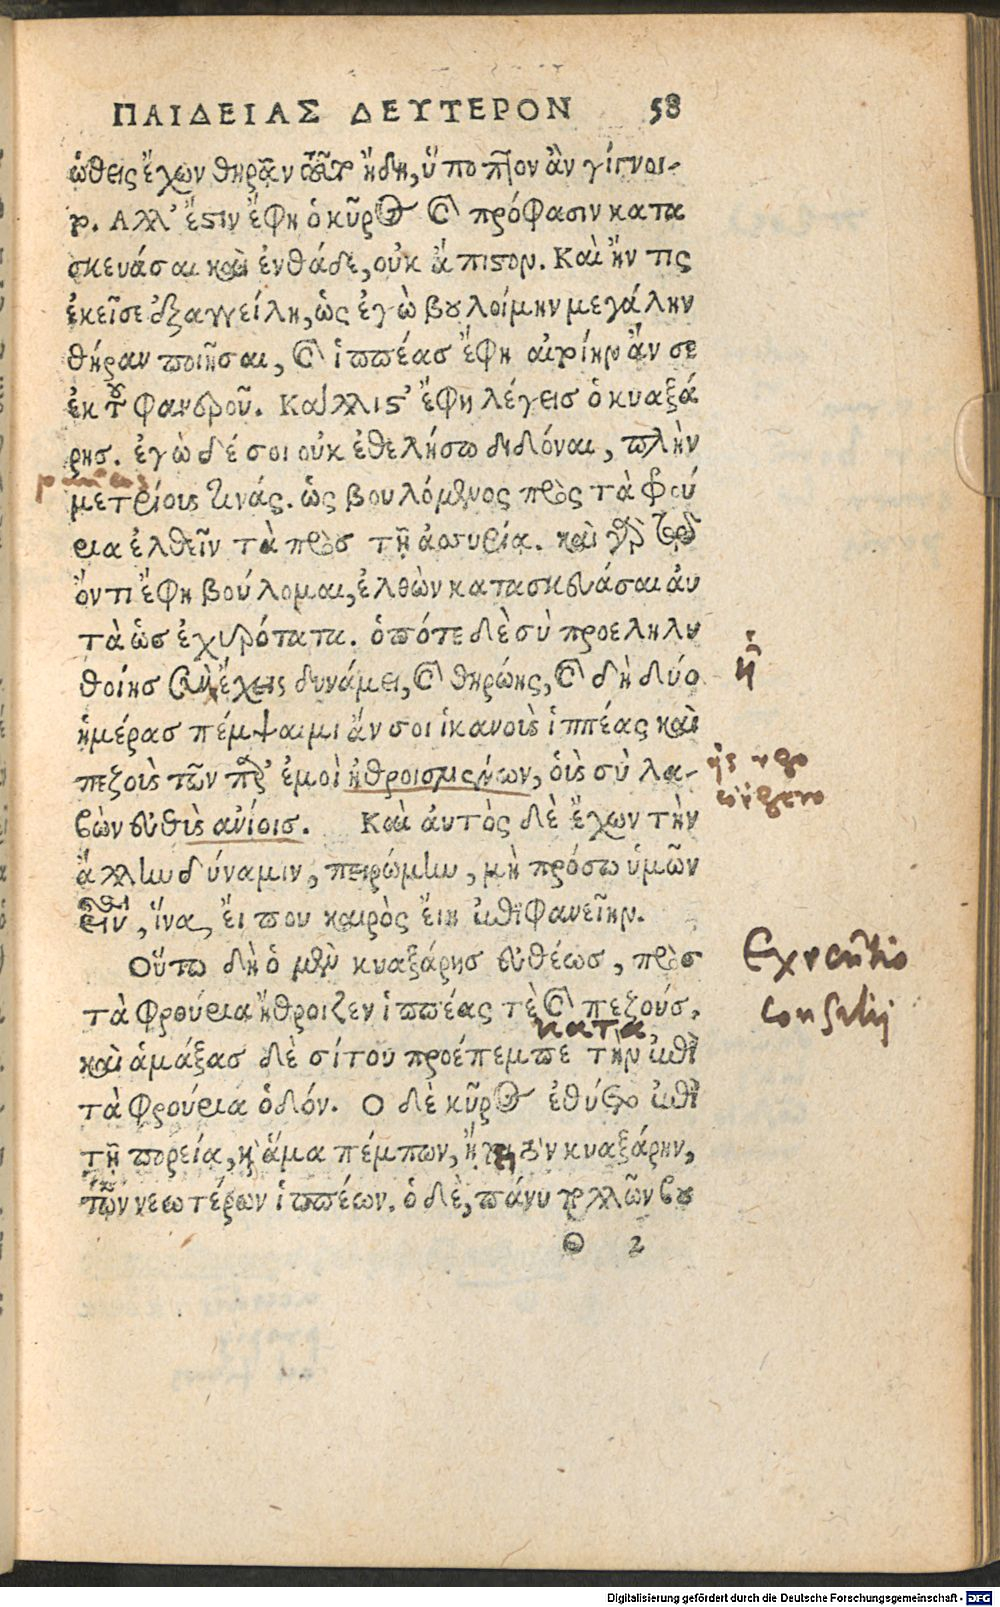 ΠΑΙΔΕΙΑΣ ΔΕΥΤΕΡΟΝ 58
ώθεις ἔχων θηρᾶν ἤδη, ὕποπτον ἂν γίγνοι-
το. Ἀλλ' ἔστιν ἔφη ὁ κῦρος καὶ πρόφασιν κατα
σκευάσαι καὶ ἐνθάδε, οὐκ ἄπιστον. Καὶ ἤν τις
ἐκεῖσε ἐξαγγείλῃ, ὡς ἐγὼ βουλοίμην μεγάλην
θήραν ποιῆσαι, καὶ ἱππέας ἔφη αἰτοίην ἄν σε
ἐκ τοῦ φανεροῦ. Κάλλιστ' ἔφη λέγεις ὁ κυαξά
ρης. ἐγὼ δέ σοι οὐκ ἐθελήσω διδόναι, πλὴν
μετρίους τινάς. ὡς βουλόμενος πρὸς τὰ φρού
ρια ἐλθεῖν τὰ πρὸς τῇ ἀσσυρία. καὶ γὰρ τῷ
ὄντι ἔφη βούλομαι, ἐλθὼν κατασκευάσαι αὐ
τὰ ὡς ἐχυρότατα. ὁπότε δὲ σὺ προεληλυ
θοίης σὺν ᾗ ἔχεις δυνάμει, καὶ θηρώης, καὶ δὴ δύο
ἡμέρας πέμψαιμι ἄν σοι ἱκανοὺς ἱππέας καὶ
πεζοὺς τῶν παρ' ἐμοὶ ἠθροισμένων, οὓς σὺ λα-
βὼν εὐθὺς ἀνίοις. Καὶ αὐτὸς δὲ ἔχων τὴν
ἄλλην δύναμιν, πειρώμην, μὴ πρόσω ὑμῶν
εἶναι, ἵνα, εἴ που καιρὸς εἴη ἐπιφανείην.
Οὕτω δὴ ὁ μὲν κυαξάρης εὐθέως, πρὸς
τὰ φρούρια ἤθροιζεν ἱππέας τὲ καὶ πεζούς,
κατα
καὶ ἁμάξας δὲ σίτου προέπεμπε τὴν ἐπὶ
τὰ φρούρια ὁδόν. Ο δὲ κῦρος ἐθύετο ἐπὶ
τῇ πορεία, καὶ ἅμα πέμπων, κυαξάρην,
τῶν νεωτέρων ἱππέων. ὁ δὲ, πάνυ πολλῶν βου
Θ 2
ᾗ
Executio
consilij
Digitalisierung gefördert durch die Deutsche Forschungsgemeinschaft - DFG